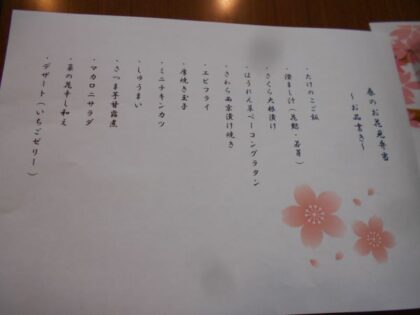 春のお花見弁当
～お品書き～
・たけのこご飯
・澄まし汁（花麩・若芽）
・さくら大根漬け
・ほうれん草ベーコングラタン
・さわら西京漬け焼き
・エビフライ
・厚焼き玉子
・ミニチキンカツ
・しゅうまい
・さつま芋甘露煮
・マカロニサラダ
・菜の花辛し和え
・デザート（いちごゼリー）